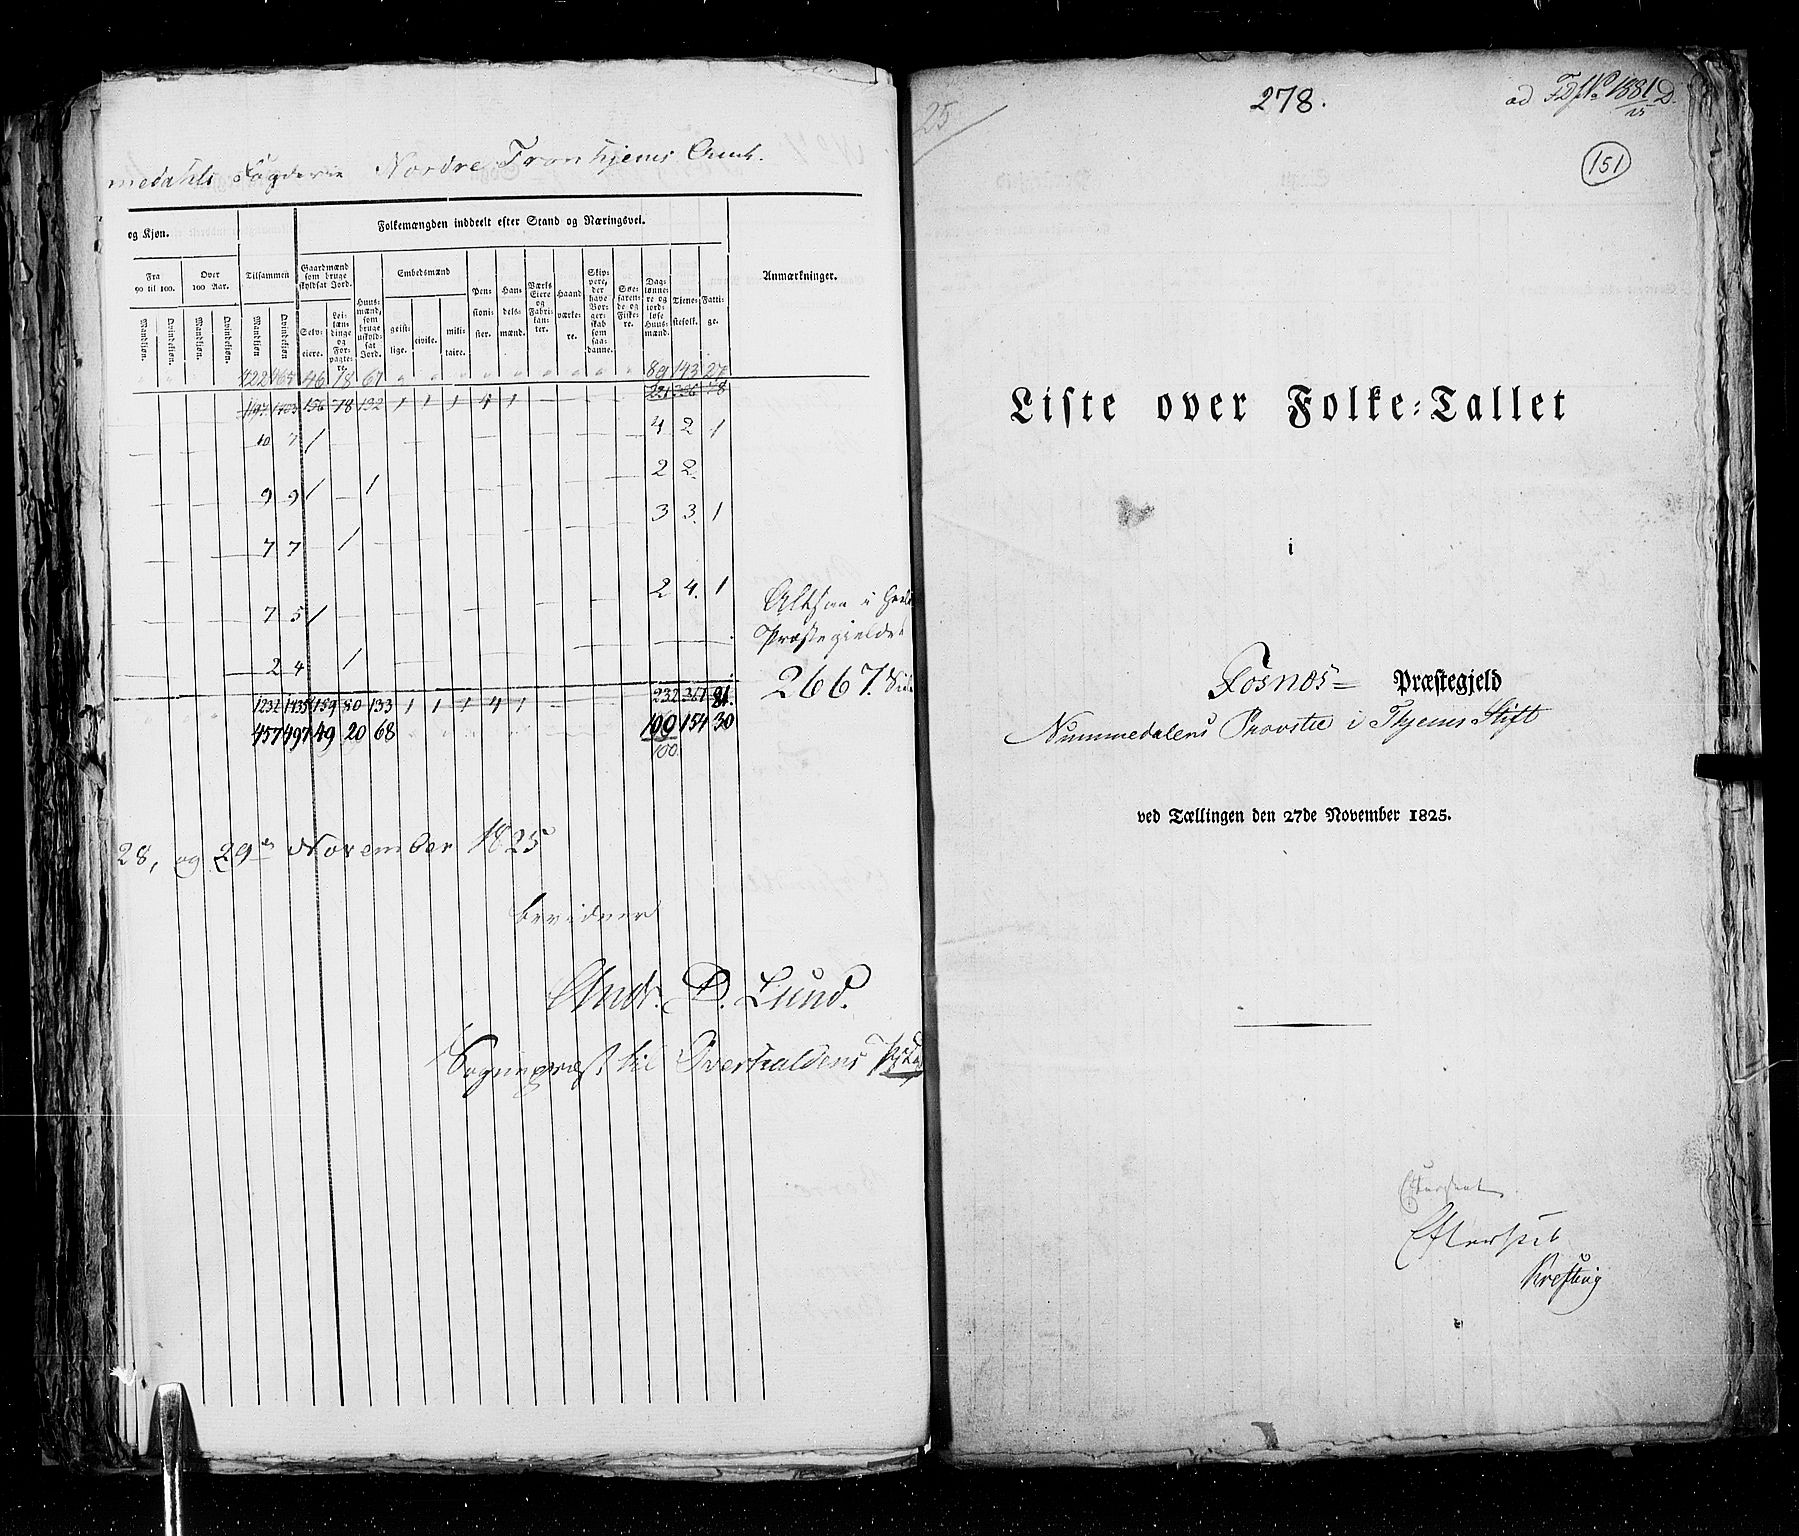 medahls Fogderie Nordre Tronhjems Amt.
og Kjøn.
Folkemængden inddeelt efter Stand og Næringsvei.
Anmærkninger.
Fra 90 til 100.
Over 100 Aar.
Tilsammen
Gaardmænd som bruge skyldsat Jord.
Huusmænd, som bruge uskyldsat Jord.
Embedsmænd
Pensionister.
Handelsmænd.
Værks Eiere og Fabrikanter.
Haandværkere.
Skippere, der have Borgerskab som saadanne.
Søefarende og Fiskere.
Daglønnere og jordløse Huusmænd.
Tjenestefolk.
Fattige.
Mandkjøn. Qvindekjøn. Mandkjøn. Qvindekjøn. Mandkjøn Qvindekjøn
Selveiere. Leilændinge og Forpagtere.
geistlige. civile. militaire.
422 465 46 18 67 89 143 27
1197 1403 156 78 132 1 1 1 4 1 221 356 78
10 7 1 4 2 1
9 9 1 1 2 2
7 7 1 3 3 1
7 5 1 2 4 1
Altsaa i
Præstegieldet
2 4 1
2667.
1232 1435 159 80 133 1 1 1 4 1 232 367 81
457 497 49 20 68 109 154 30
100
28, og 29de November 1825
bevidner
Andr. D. Lund.
Sognepræst til Overhaldens
25
278.
ad FD No 1881 D.
25
151
Liste over Folke-Tallet
i
Fosnæs Præstegjeld
Nummedalens Provstie i Thjems Stift
ved Tællingen den 27de November 1825.